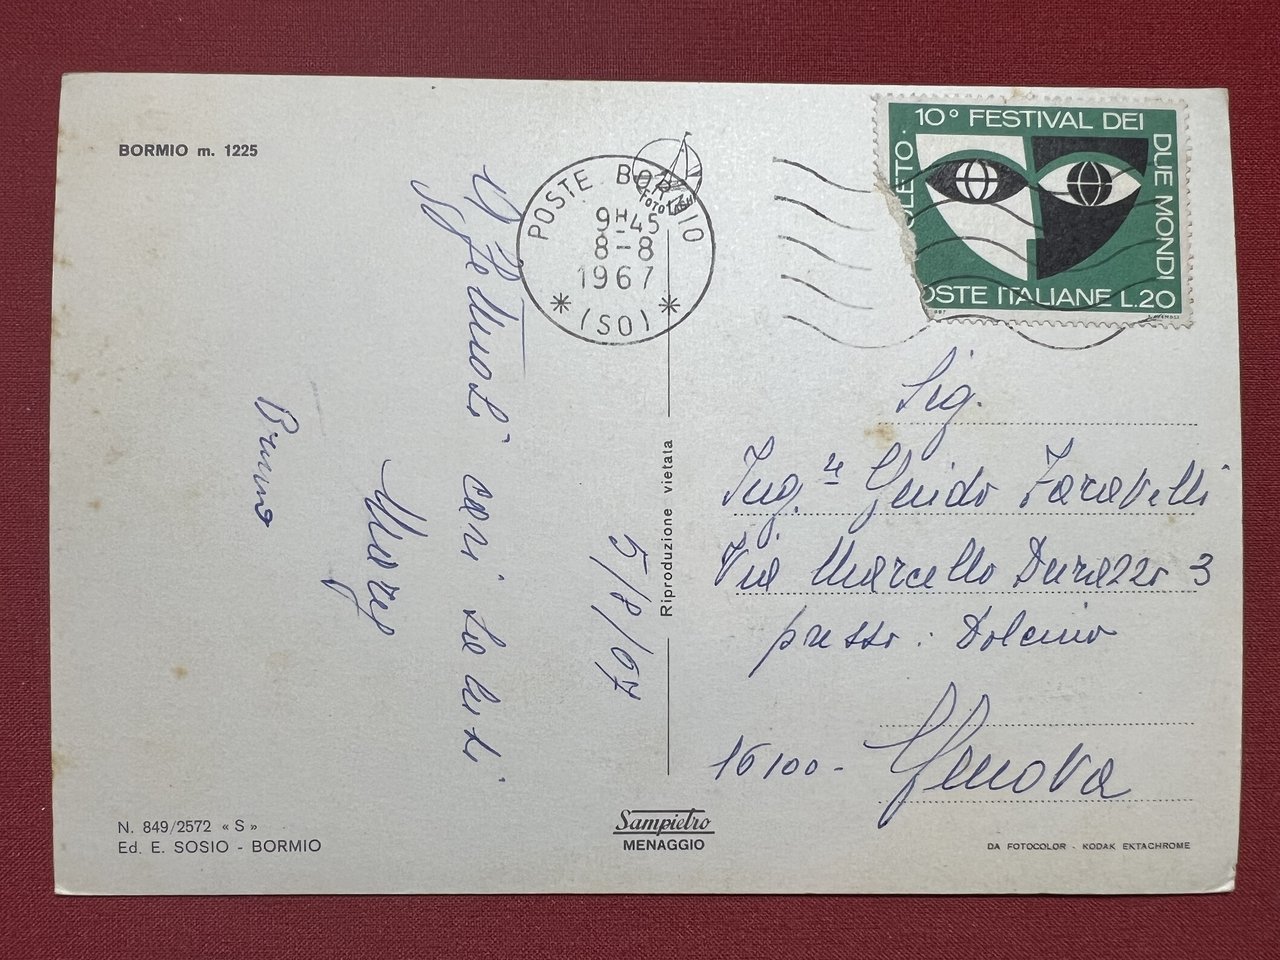 BORMIO m. 1225
10° FESTIVAL DEI
DUE MONDI
OLETO.
OSTE ITALIANE L.20
POSTE BORMIO
9H45
8-8
1967
* (SO) *
FOTO
Sig.
Ing.re Guido Faravelli
Via Marcello Durazzo 3
presso: Dolcino
16100- Genova
affettuosi cari saluti
Bruno
5/8/67
Riproduzione vietata
N. 849/2572 « S »
Ed. E. SOSIO - BORMIO
Sampietro
MENAGGIO
DA FOTOCOLOR - KODAK EKTACHROME